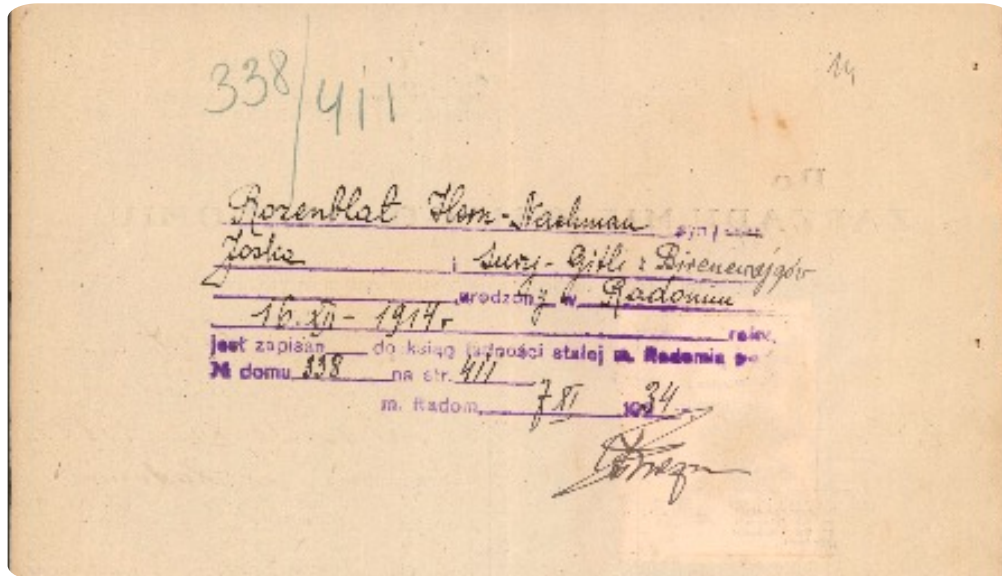 338/411
14
Rozenblat Herz-Nachman syn
Joska i Sury-Gitli z Birencwajgów
urodzony w Radomiu
16.XII - 1914 r. roku,
jest zapisan do ksiąg ludności stałej m. Radomia
№ domu 338 na str. 411
m. Radom, 7 XI 1934